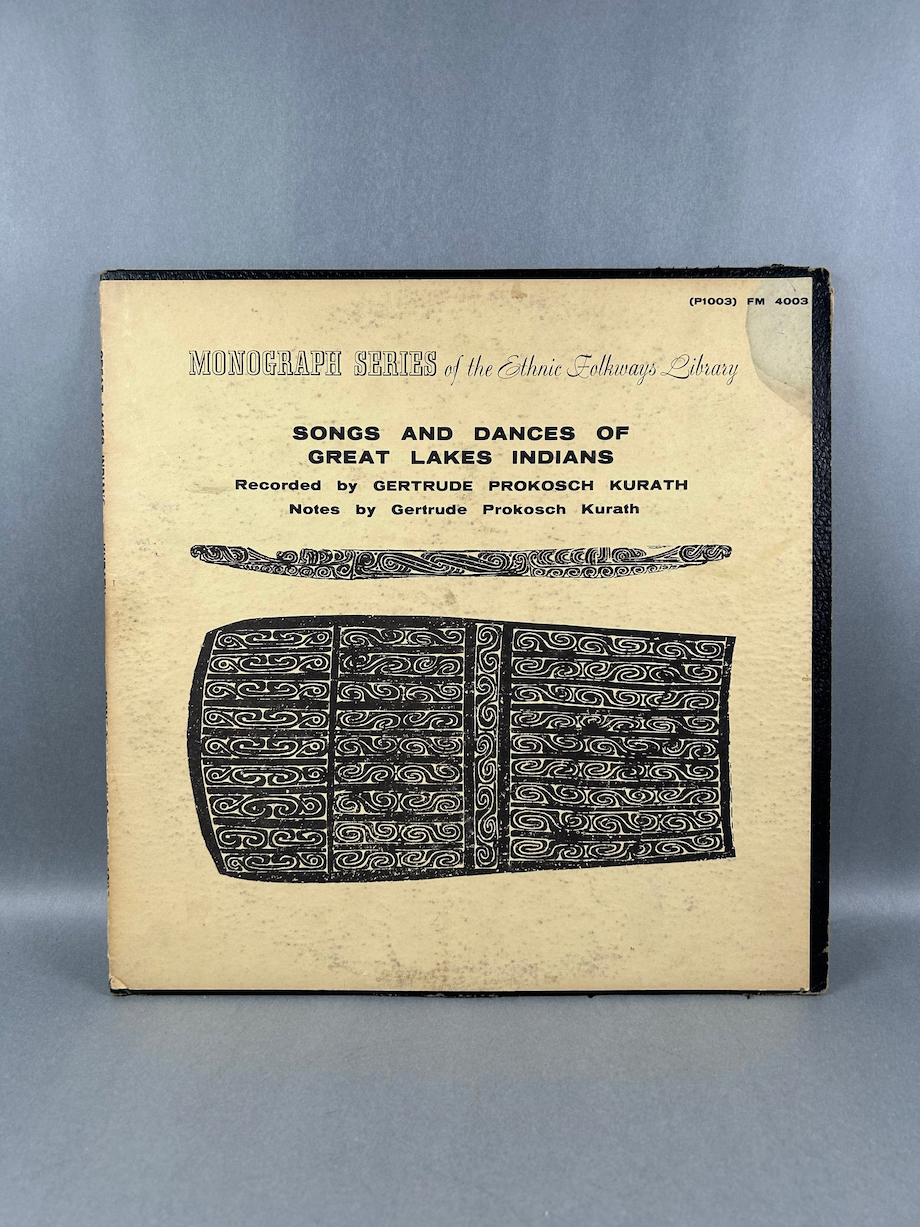 (P1003) FM 4003
MONOGRAPH SERIES of the Ethnic Folkways Library
SONGS AND DANCES OF
GREAT LAKES INDIANS
Recorded by GERTRUDE PROKOSCH KURATH
Notes by Gertrude Prokosch Kurath